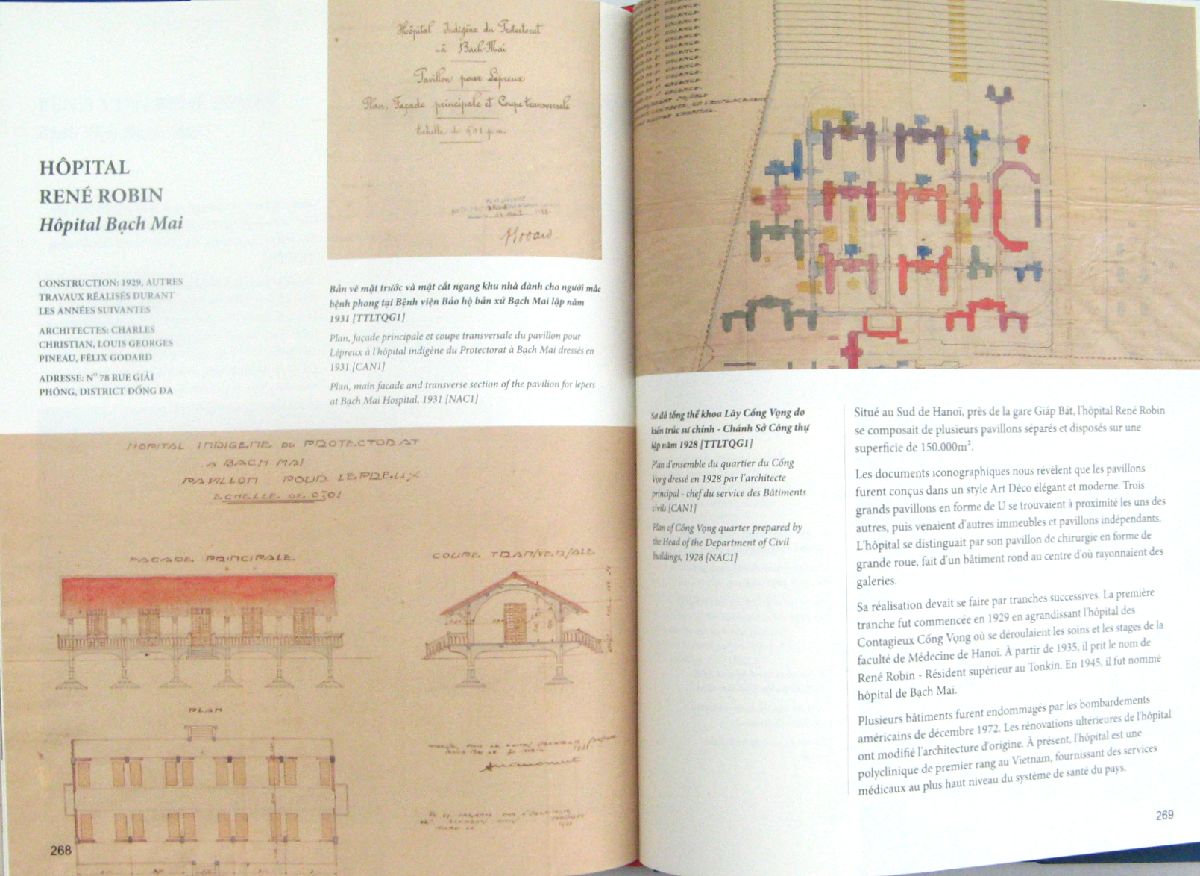 HÔPITAL
RENÉ ROBIN
Hôpital Bạch Mai
CONSTRUCTION: 1929, AUTRES
TRAVAUX RÉALISÉS DURANT
LES ANNÉES SUIVANTES
ARCHITECTES: CHARLES
CHRISTIAN, LOUIS GEORGES
PINEAU, FÉLIX GODARD
ADRESSE: N° 78 RUE GIẢI
PHÓNG, DISTRICT ĐỐNG ĐA
Hôpital Indigène du Protectorat
à Bach-Mai
Pavillon pour Lépreux
Plan, Façade principale et Coupe transversale
Echelle de
Bản vẽ mặt trước và mặt cắt ngang khu nhà dành cho người mắc
bệnh phong tại Bệnh viện Bảo hộ bản xứ Bạch Mai lập năm
1931 [TTLTQG1]
Plan, façade principale et coupe transversale du pavillon pour
Lépreux à l'hôpital indigène du Protectorat à Bạch Mai dressés en
1931 [CAN1]
Plan, main facade and transverse section of the pavilion for lepers
at Bach Mai Hospital, 1931 [NAC1]
HOPITAL INDIGENE DU PROTECTORAT
A BACH MAI
PAVILLON POUR LEPREUX
ECHELLE DE 0.01
FACADE PRINCIPALE
COUPE TRANSVERSALE
PLAN
268
Sơ đồ tổng thể khoa Lây Cống Vọng do
kiến trúc sư chính - Chánh Sở Công thự
lập năm 1928 [TTLTQG1]
Plan d'ensemble du quartier du Cống
Vọng dressé en 1928 par l'architecte
principal - chef du service des Bâtiments
civils [CAN1]
Plan of Cống Vọng quarter prepared by
the Head of the Department of Civil
buildings, 1928 [NAC1]
Situé au Sud de Hanoï, près de la gare Giáp Bát, l'hôpital René Robin
se composait de plusieurs pavillons séparés et disposés sur une
superficie de 150.000m².
Les documents iconographiques nous révèlent que les pavillons
furent conçus dans un style Art Déco élégant et moderne. Trois
grands pavillons en forme de U se trouvaient à proximité les uns des
autres, puis venaient d'autres immeubles et pavillons indépendants.
L'hôpital se distinguait par son pavillon de chirurgie en forme de
grande roue, fait d'un bâtiment rond au centre d'où rayonnaient des
galeries.
Sa réalisation devait se faire par tranches successives. La première
tranche fut commencée en 1929 en agrandissant l'hôpital des
Contagieux Cống Vọng où se déroulaient les soins et les stages de la
faculté de Médecine de Hanoï. À partir de 1935, il prit le nom de
René Robin - Résident supérieur au Tonkin. En 1945, il fut nommé
hôpital de Bạch Mai.
Plusieurs bâtiments furent endommagés par les bombardements
américains de décembre 1972. Les rénovations ultérieures de l'hôpital
ont modifié l'architecture d'origine. À présent, l'hôpital est une
polyclinique de premier rang au Vietnam, fournissant des services
médicaux au plus haut niveau du système de santé du pays.
269